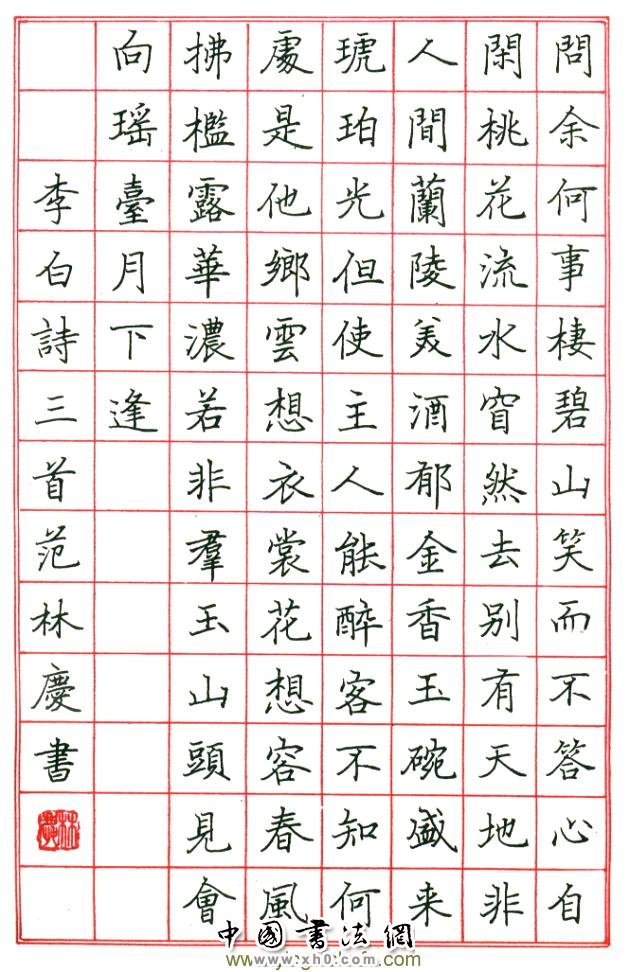 問余何事棲碧山笑而不答心自
閑桃花流水窅然去别有天地非
人間蘭陵美酒郁金香玉碗盛来
琥珀光但使主人能醉客不知何
處是他鄉雲想衣裳花想容春風
拂檻露華濃若非羣玉山頭見會
向瑶臺月下逢
李白詩三首范林慶書
中國書法網